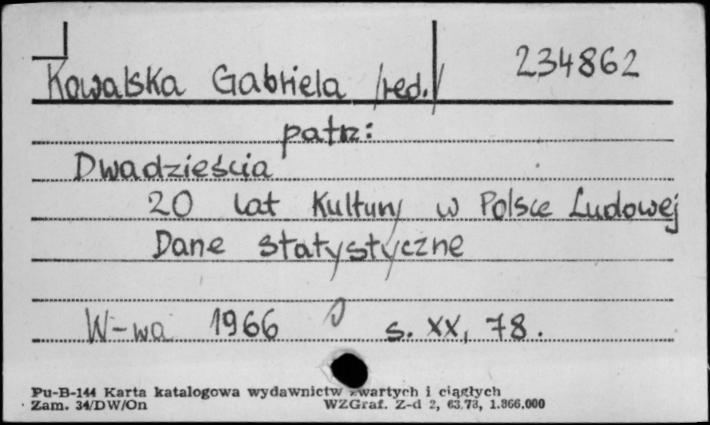 Kowalska Gabriela /red./ 234862
patrz:
Dwadzieścia
20 lat Kultury w Polsce Ludowej
Dane statystyczne
W-wa 1966 s. XX, 78.
Pu-B-144 Karta katalogowa wydawnictw zwartych i ciągłych
Zam. 34/DW/On WZGraf. Z-d 2, 63.73, 1.866.000